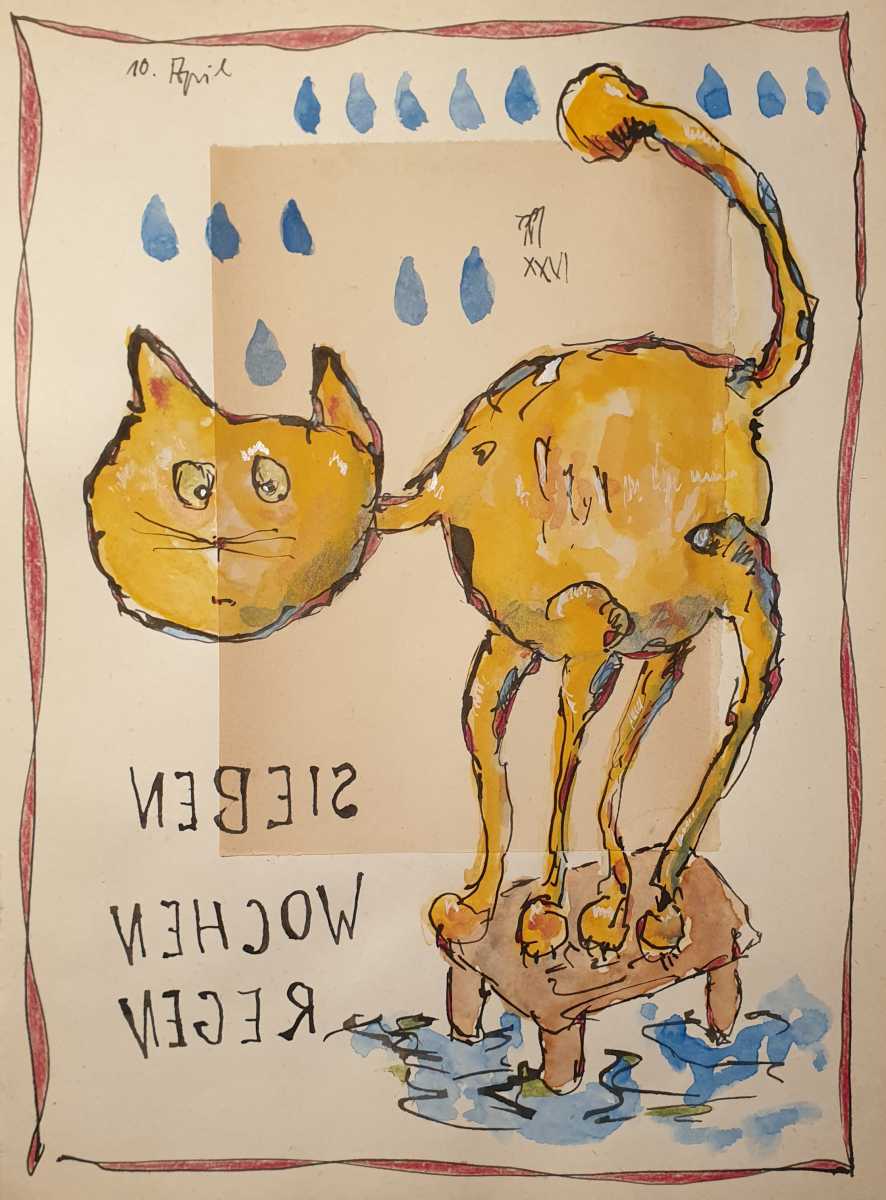 10. April
XXVI
SIEBEN
WOCHEN
REGEN